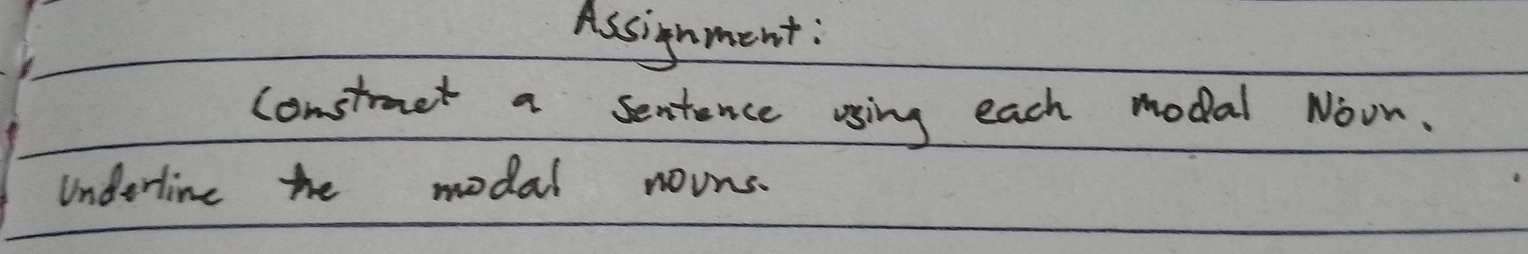 Assignment:
Construct a sentence using each modal Noun.
Underline the modal nouns.